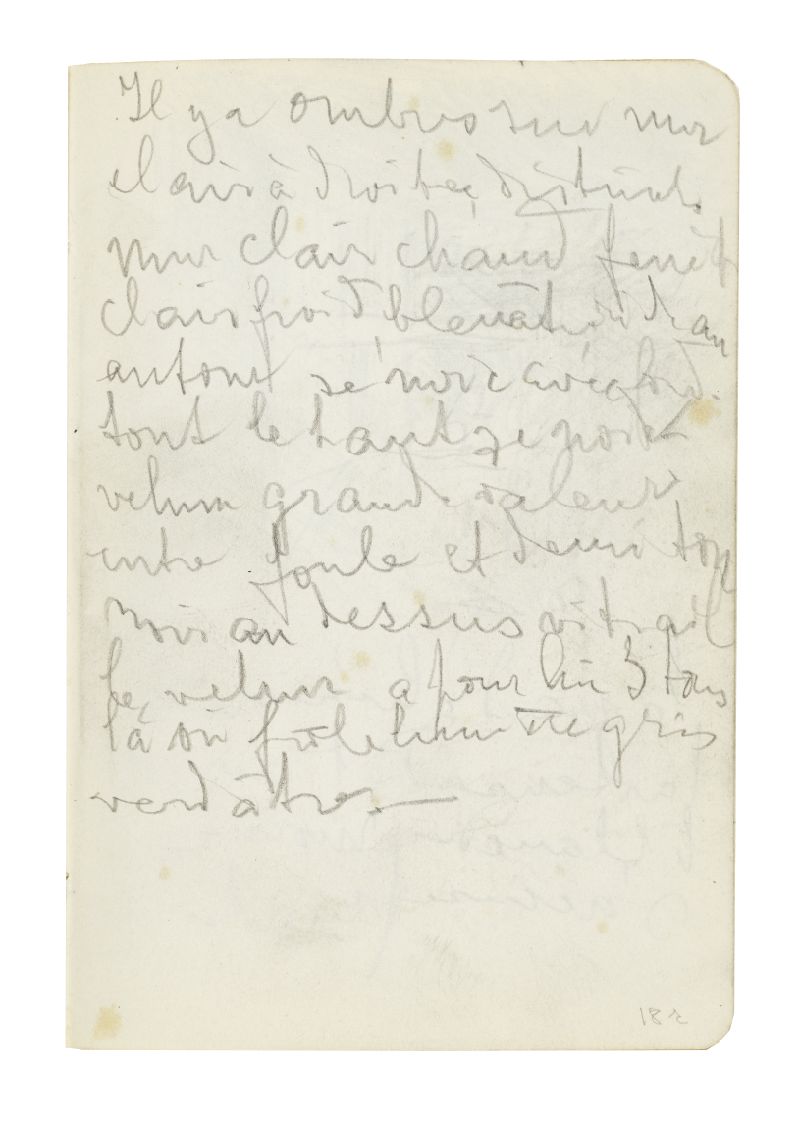 Il y a ombres sur mur
clair à droite, distincte
mur clair chaud fenêt
clair froid bleuâtre
autour noir avec
tout le haut
velum grande valeur
entre foule et demi ton
noir au dessus vitrail
le velum a pour lui 3 tons
là où frôle lumière gris
verdâtre. —
18r